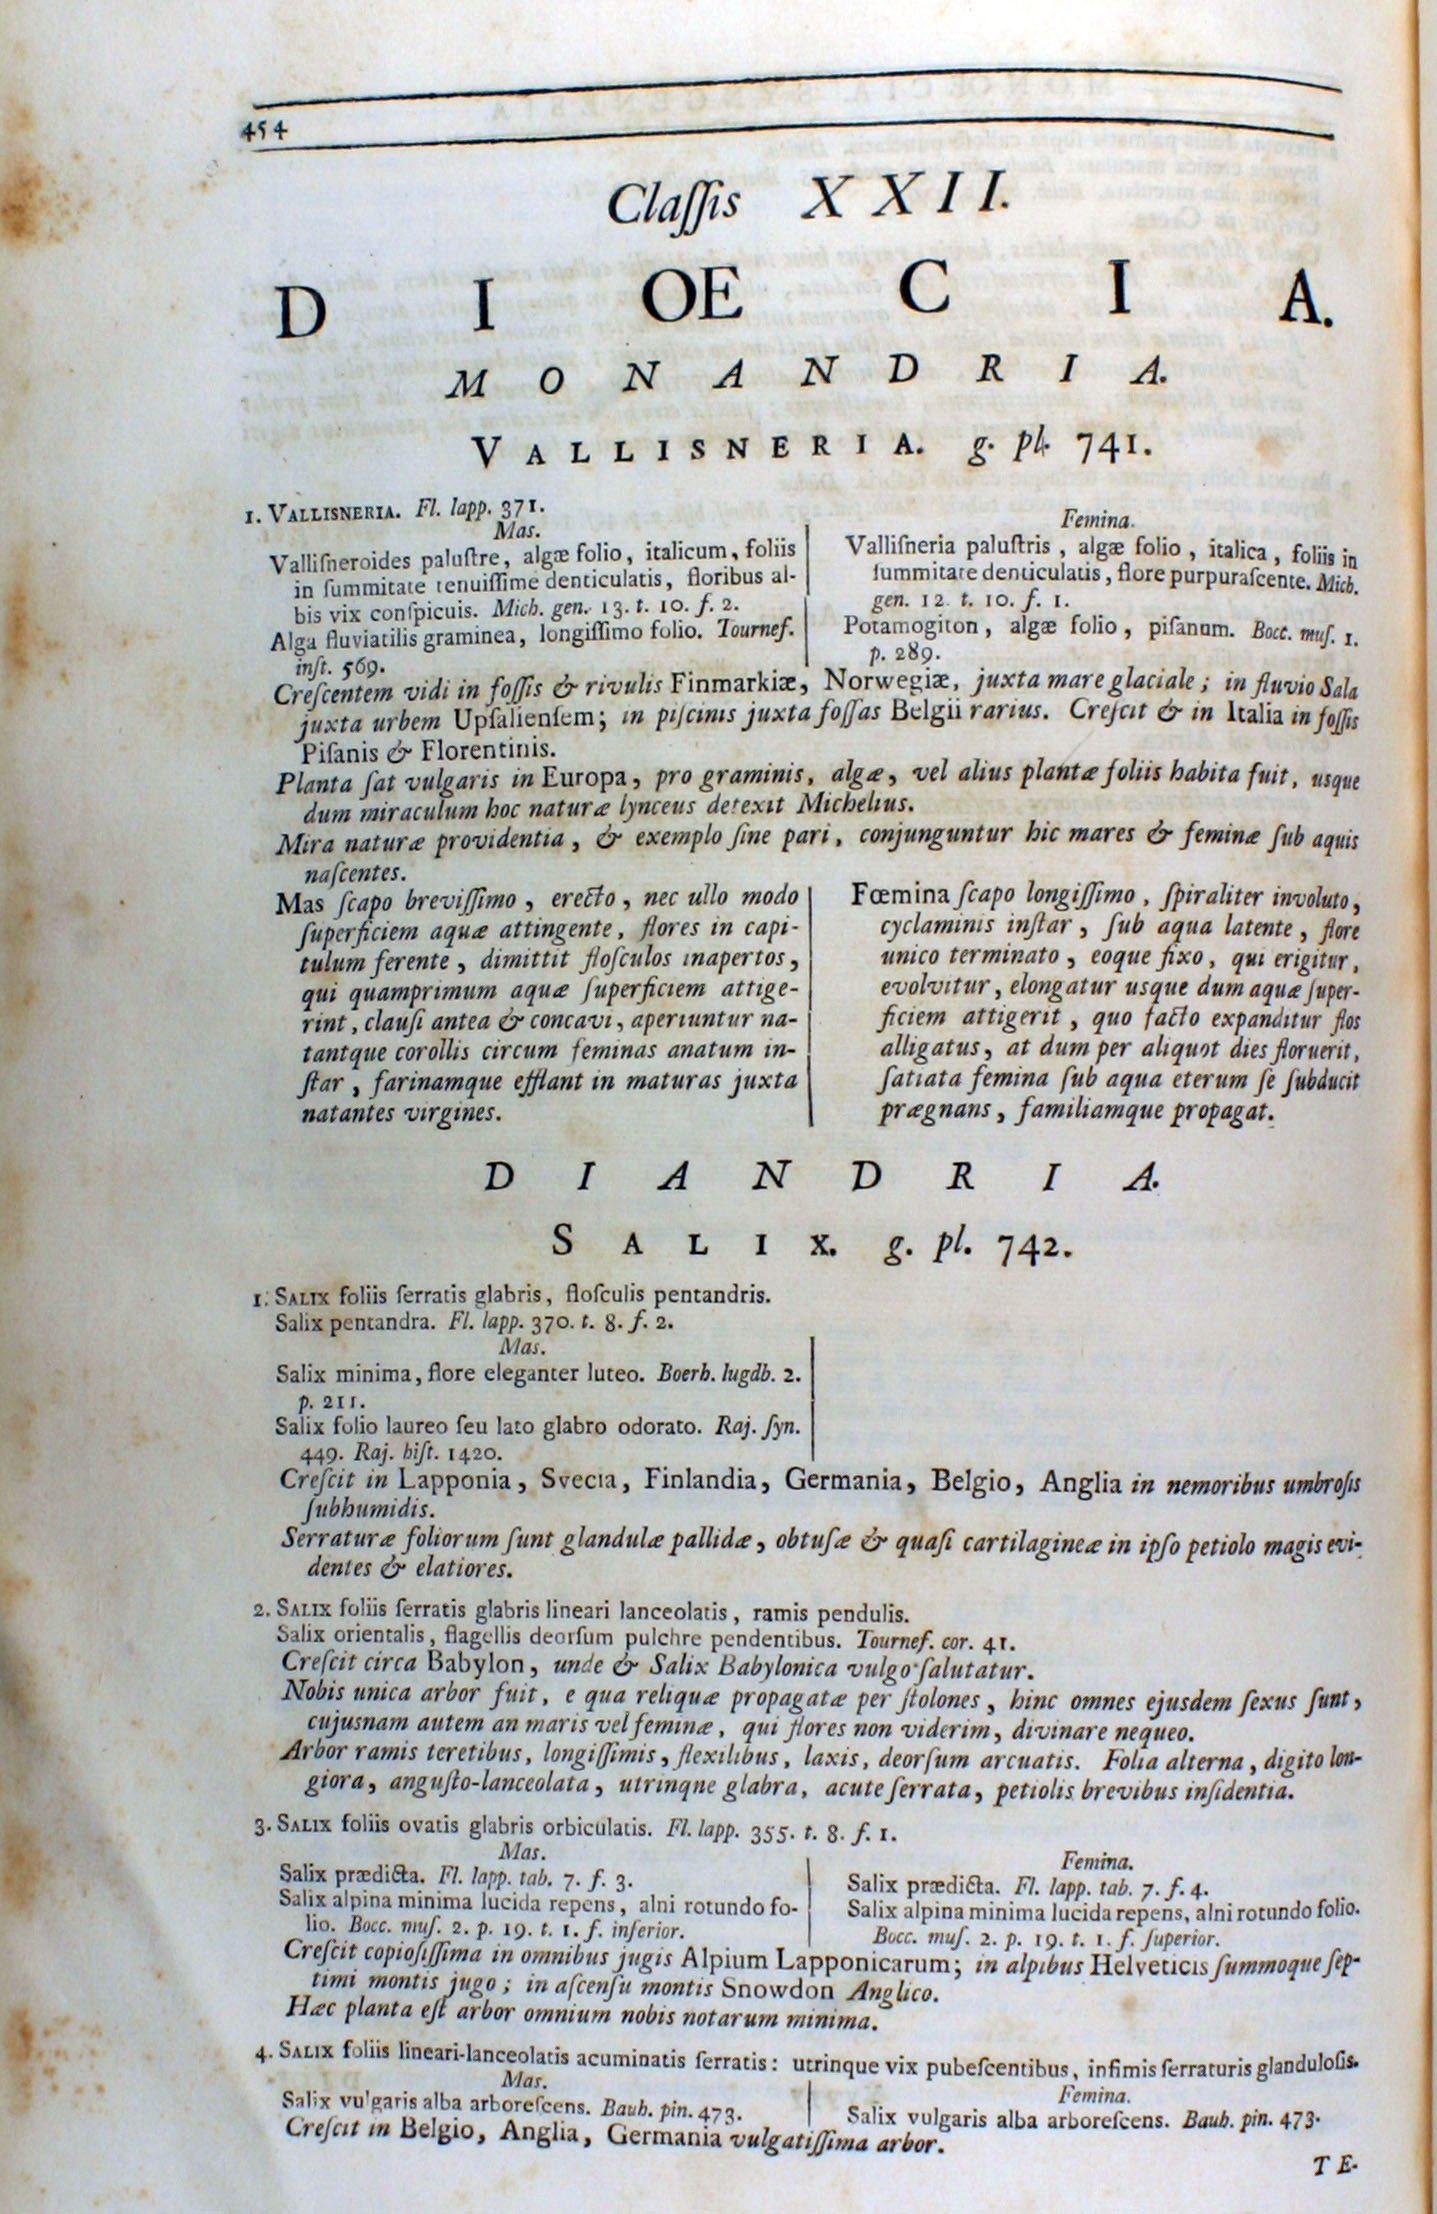 454
Claſſis XXII.
DIOECIA.
MONANDRIA.
VALLISNERIA. g. pl. 741.
1. VALLISNERIA. Fl. lapp. 371.
Mas.
Valliſneroides paluſtre, algæ folio, italicum, foliis
in ſummitate tenuiſſime denticulatis, floribus al-
bis vix conſpicuis. Mich. gen. 13. t. 10. f. 2.
Alga fluviatilis graminea, longiſſimo folio. Tournef.
inſt. 569.
Femina.
Valliſneria paluſtris, algæ folio, italica, foliis in
ſummitate denticulatis, flore purpuraſcente. Mich.
gen. 12. t. 10. f. 1.
Potamogiton, algæ folio, piſanum. Bocc. muſ. 1.
p. 289.
Creſcentem vidi in foſſis & rivulis Finmarkiæ, Norwegiæ, juxta mare glaciale; in fluvio Sala
juxta urbem Upſalienſem; in piſcinis juxta foſſas Belgii rarius. Creſcit & in Italia in foſſis
Piſanis & Florentinis.
Planta ſat vulgaris in Europa, pro graminis, algæ, vel alius plantæ foliis habita fuit, usque
dum miraculum hoc naturæ lynceus detexit Michelius.
Mira naturæ providentia, & exemplo ſine pari, conjunguntur hic mares & feminæ ſub aquis
naſcentes.
Mas ſcapo breviſſimo, erecto, nec ullo modo
ſuperficiem aquæ attingente, flores in capi-
tulum ferente, dimittit floſculos inapertos,
qui quamprimum aquæ ſuperficiem attige-
rint, clauſi antea & concavi, aperiuntur na-
tantque corollis circum feminas anatum in-
ſtar, farinamque efflant in maturas juxta
natantes virgines.
Fœmina ſcapo longiſſimo, ſpiraliter involuto,
cyclaminis inſtar, ſub aqua latente, flore
unico terminato, eoque fixo, qui erigitur,
evolvitur, elongatur usque dum aquæ ſuper-
ficiem attigerit, quo facto expanditur flos
alligatus, at dum per aliquot dies floruerit,
ſatiata femina ſub aqua eterum ſe ſubducit
prægnans, familiamque propagat.
DIANDRIA.
SALIX. g. pl. 742.
1. SALIX foliis ſerratis glabris, floſculis pentandris.
Salix pentandra. Fl. lapp. 370. t. 8. f. 2.
Mas.
Salix minima, flore eleganter luteo. Boerh. lugdb. 2.
p. 211.
Salix folio laureo ſeu lato glabro odorato. Raj. ſyn.
449. Raj. hiſt. 1420.
Creſcit in Lapponia, Svecia, Finlandia, Germania, Belgio, Anglia in nemoribus umbroſis
ſubhumidis.
Serraturæ foliorum ſunt glandulæ pallidæ, obtuſæ & quaſi cartilagineæ in ipſo petiolo magis evi-
dentes & elatiores.
2. SALIX foliis ſerratis glabris lineari lanceolatis, ramis pendulis.
Salix orientalis, flagellis deorſum pulchre pendentibus. Tournef. cor. 41.
Creſcit circa Babylon, unde & Salix Babylonica vulgo ſalutatur.
Nobis unica arbor fuit, e qua reliquæ propagatæ per ſtolones, hinc omnes ejusdem ſexus ſunt,
cujusnam autem an maris vel feminæ, qui flores non viderim, divinare nequeo.
Arbor ramis teretibus, longiſſimis, flexilibus, laxis, deorſum arcuatis. Folia alterna, digito lon-
giora, anguſto-lanceolata, utrinqne glabra, acute ſerrata, petiolis brevibus inſidentia.
3. SALIX foliis ovatis glabris orbiculatis. Fl. lapp. 355. t. 8. f. 1.
Mas.
Salix prædicta. Fl. lapp. tab. 7. f. 3.
Salix alpina minima lucida repens, alni rotundo fo-
lio. Bocc. muſ. 2. p. 19. t. 1. f. inferior.
Femina.
Salix prædicta. Fl. lapp. tab. 7. f. 4.
Salix alpina minima lucida repens, alni rotundo folio.
Bocc. muſ. 2. p. 19. t. 1. f. ſuperior.
Creſcit copioſiſſima in omnibus jugis Alpium Lapponicarum; in alpibus Helveticis ſummoque ſep-
timi montis jugo; in aſcenſu montis Snowdon Anglico.
Hæc planta eſt arbor omnium nobis notarum minima.
4. SALIX foliis lineari-lanceolatis acuminatis ſerratis: utrinque vix pubeſcentibus, infimis ſerraturis glanduloſis.
Mas.
Salix vulgaris alba arboreſcens. Bauh. pin. 473.
Femina.
Salix vulgaris alba arboreſcens. Bauh. pin. 473.
Creſcit in Belgio, Anglia, Germania vulgatiſſima arbor.
TE-